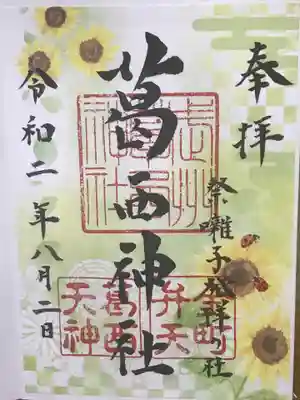 奉拝
祭囃子発祥の社
葛西神社
葛西
天神
弁天
令和二年八月二日